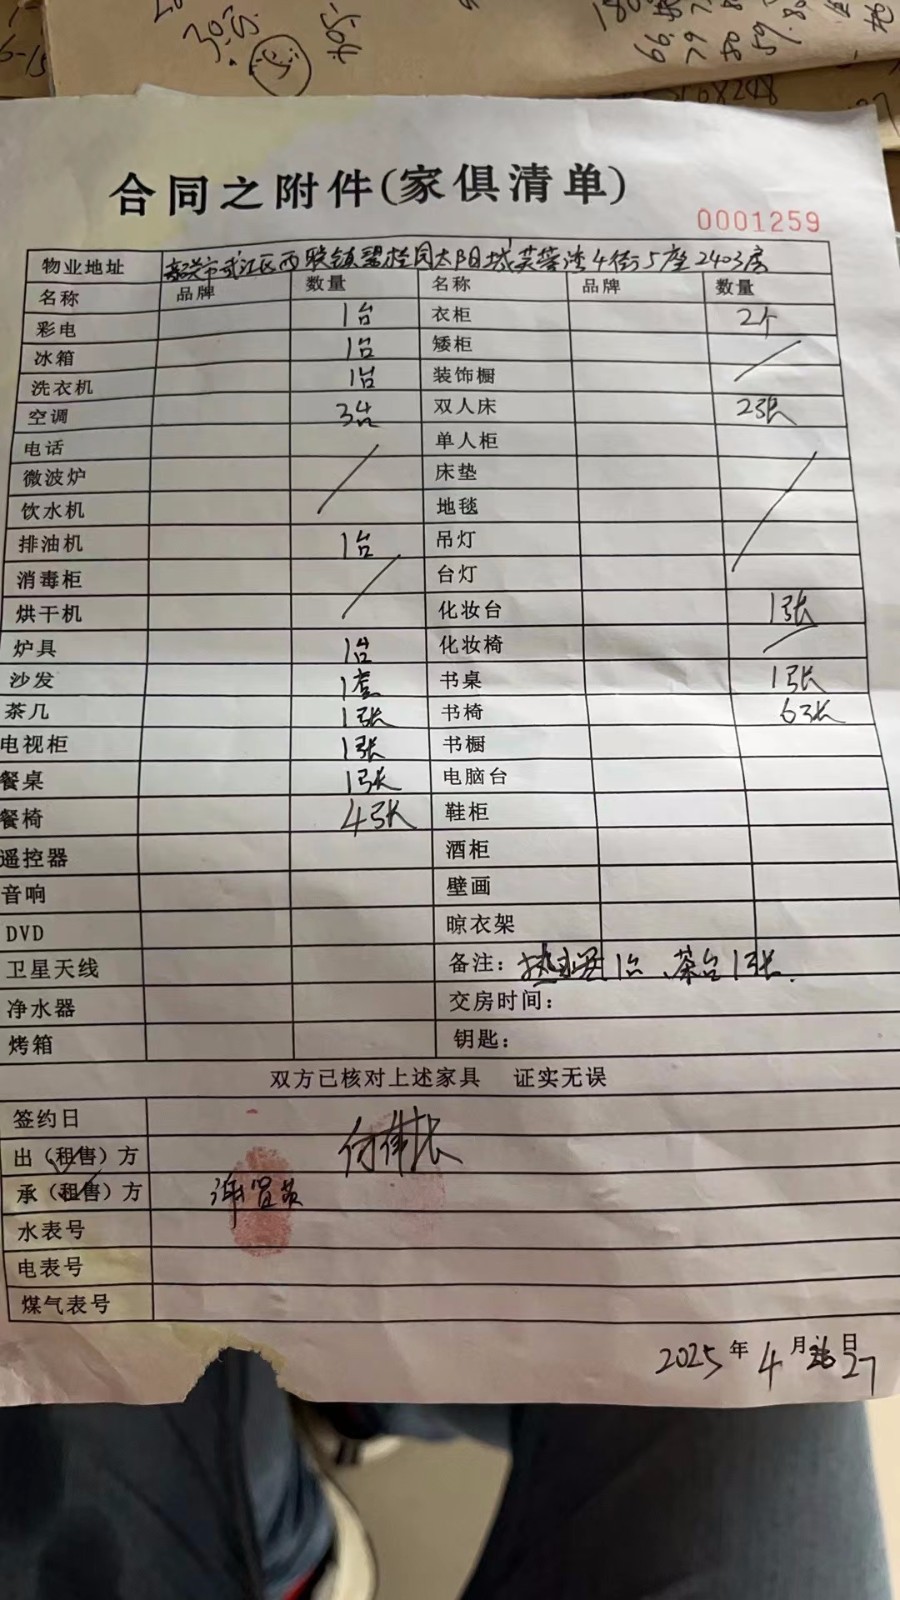 合同之附件(家俱清单)
0001259
物业地址 市武江区西联镇碧桂园太阳城芙蓉湾4街5座2403房
名称 品牌 数量 名称 品牌 数量
彩电 1台 衣柜 2个
冰箱 1台 矮柜
洗衣机 1台 装饰橱
空调 3台 双人床 2张
电话 单人柜
微波炉 床垫
饮水机 地毯
排油机 1台 吊灯
消毒柜 台灯
烘干机 化妆台 1张
炉具 1台 化妆椅
沙发 1套 书桌 1张
茶几 1张 书椅 6张
电视柜 1张 书橱
餐桌 1张 电脑台
餐椅 4张 鞋柜
遥控器 酒柜
音响 壁画
DVD 晾衣架
卫星天线 备注：热水器1台、茶台1张.
净水器 交房时间：
烤箱 钥匙：
双方已核对上述家具 证实无误
签约日
出（租售）方
承（租售）方
水表号
电表号
煤气表号
2025年4月27日